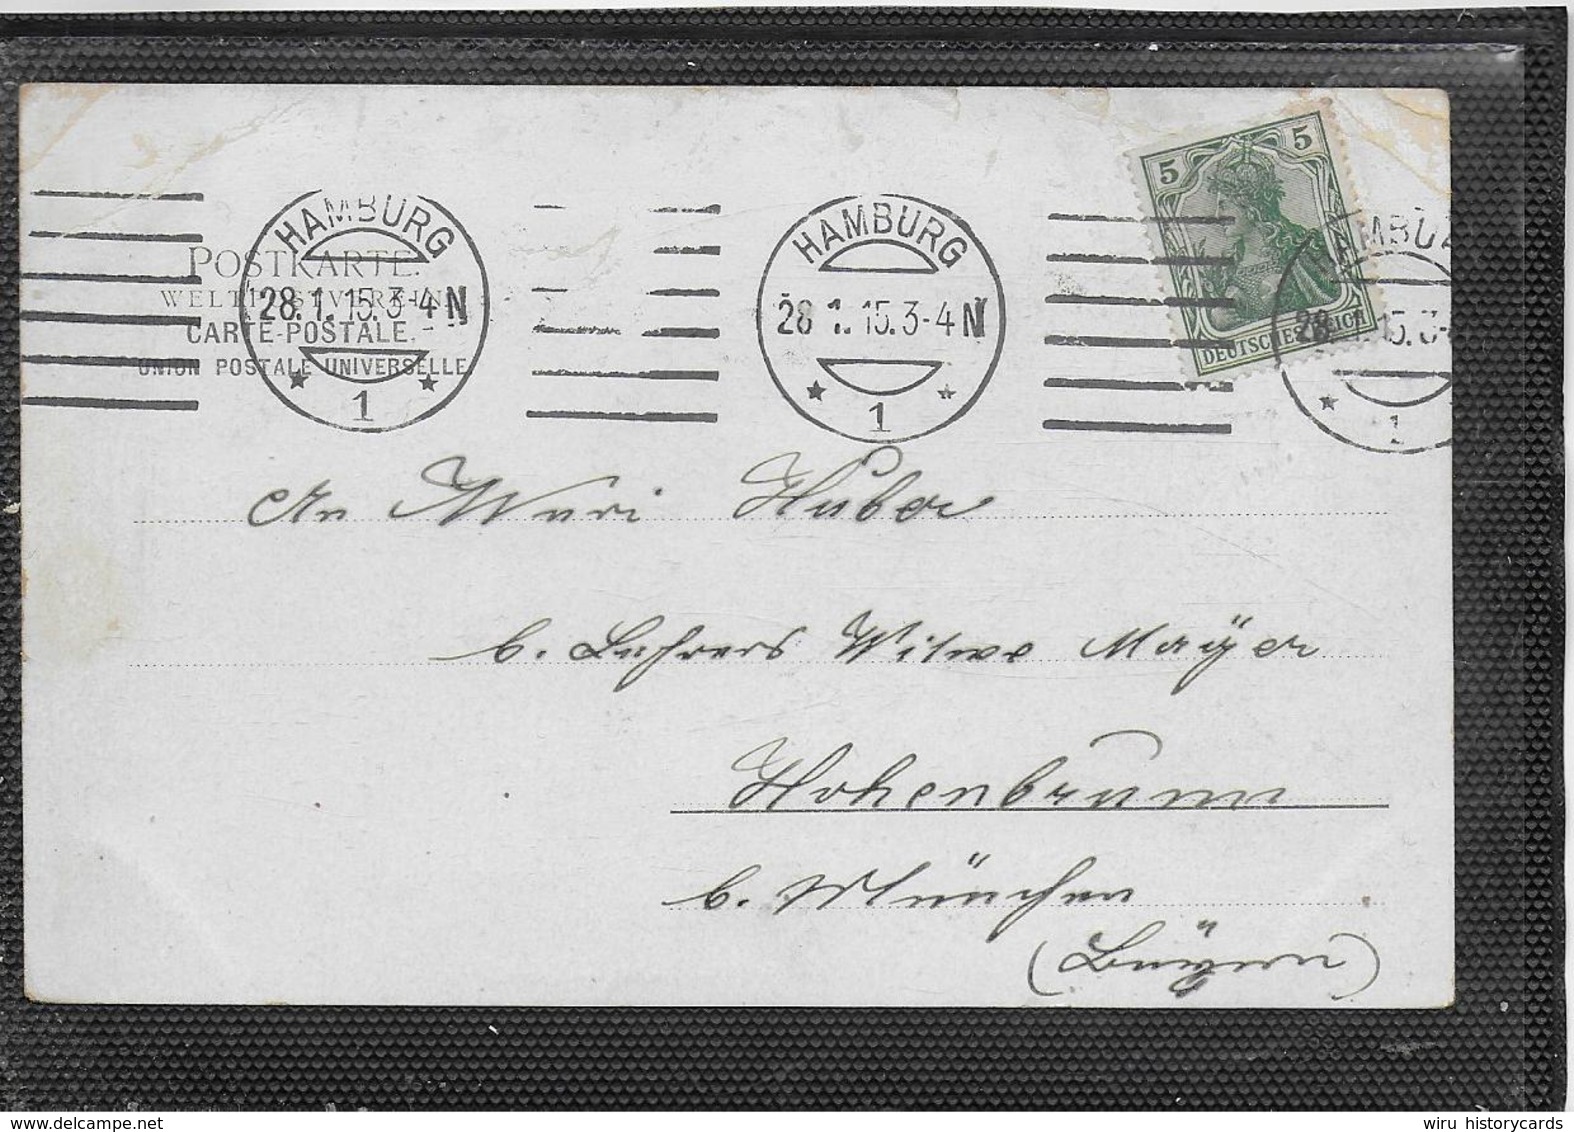 HAMBURG
28.1.15.3-4N
1
HAMBURG
28 1. 15.3-4N
1
5 5
DEUTSCHES REICH
HAMBU
28. 1. 15. 3-
1
POSTKARTE.
WELTPOSTVEREIN
CARTE-POSTALE.
UNION POSTALE UNIVERSELLE
An Huber
b. Lehrers Witwe Mayer
Hohenbrunn
b. München
(Bayern)
wiru historycards